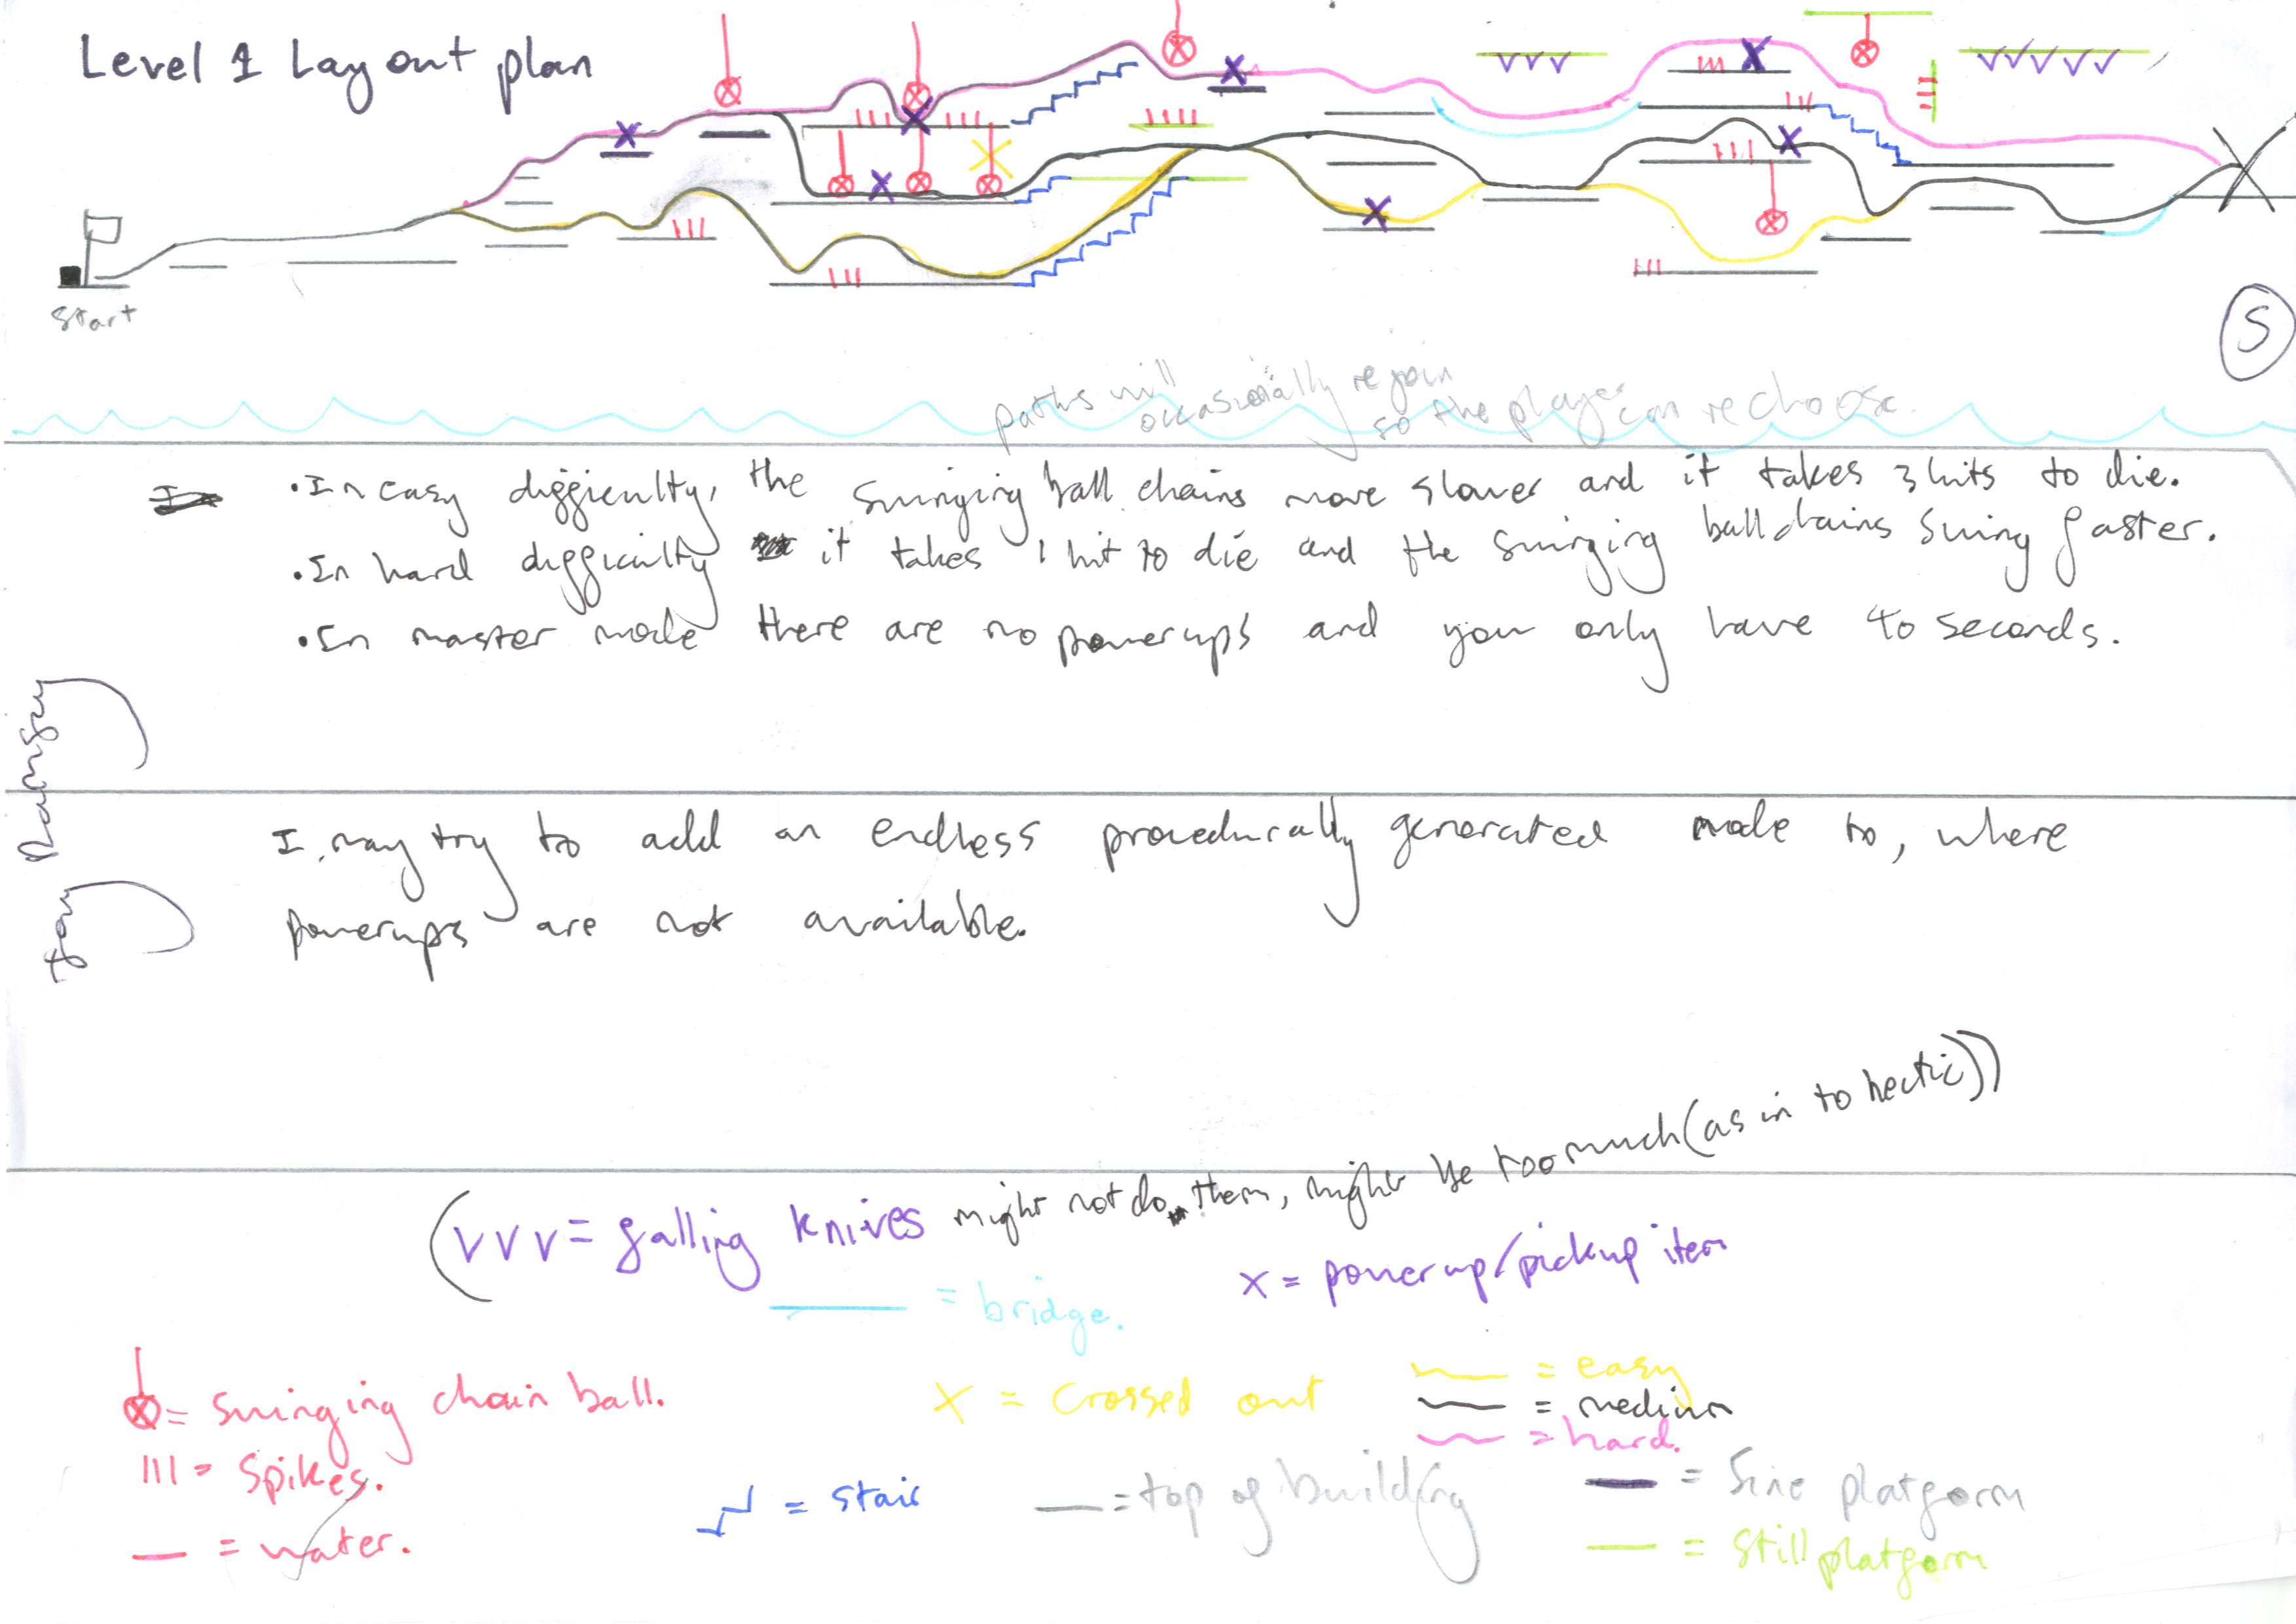 Level 1 Layout plan
start
5
paths will occasionally rejoin
so the player can rechoose.
• In easy difficulty, the swinging ball chains move slower and it takes 3 hits to die.
• In hard difficulty it takes 1 hit to die and the swinging ball chains swing faster.
• In master mode there are no powerups and you only have 40 seconds.
I may try to add an endless procedurally generated mode to, where
powerups are not available.
(VVV = falling knives might not do them, might be too much (as in to hectic))
x = powerup/pickup item
= bridge.
= swinging chain ball.
X = crossed out
= easy
= medium
= hard.
III = Spikes.
= stair
= top of building
= Sine platform
= water.
= still platform